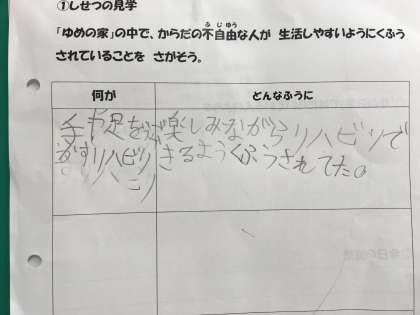 ①しせつの見学
ふじゆう
「ゆめの家」の中で、からだの不自由な人が 生活しやすいようにくふう
されていることを さがそう。
何が
どんなふうに
手や足を
がすリハビリ
リハビリ
楽しみながらリハビリで
きるようくふうされてた。